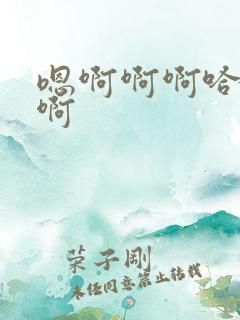 嗯啊啊啊哈
啊
荣子刚
未经同意禁止转载